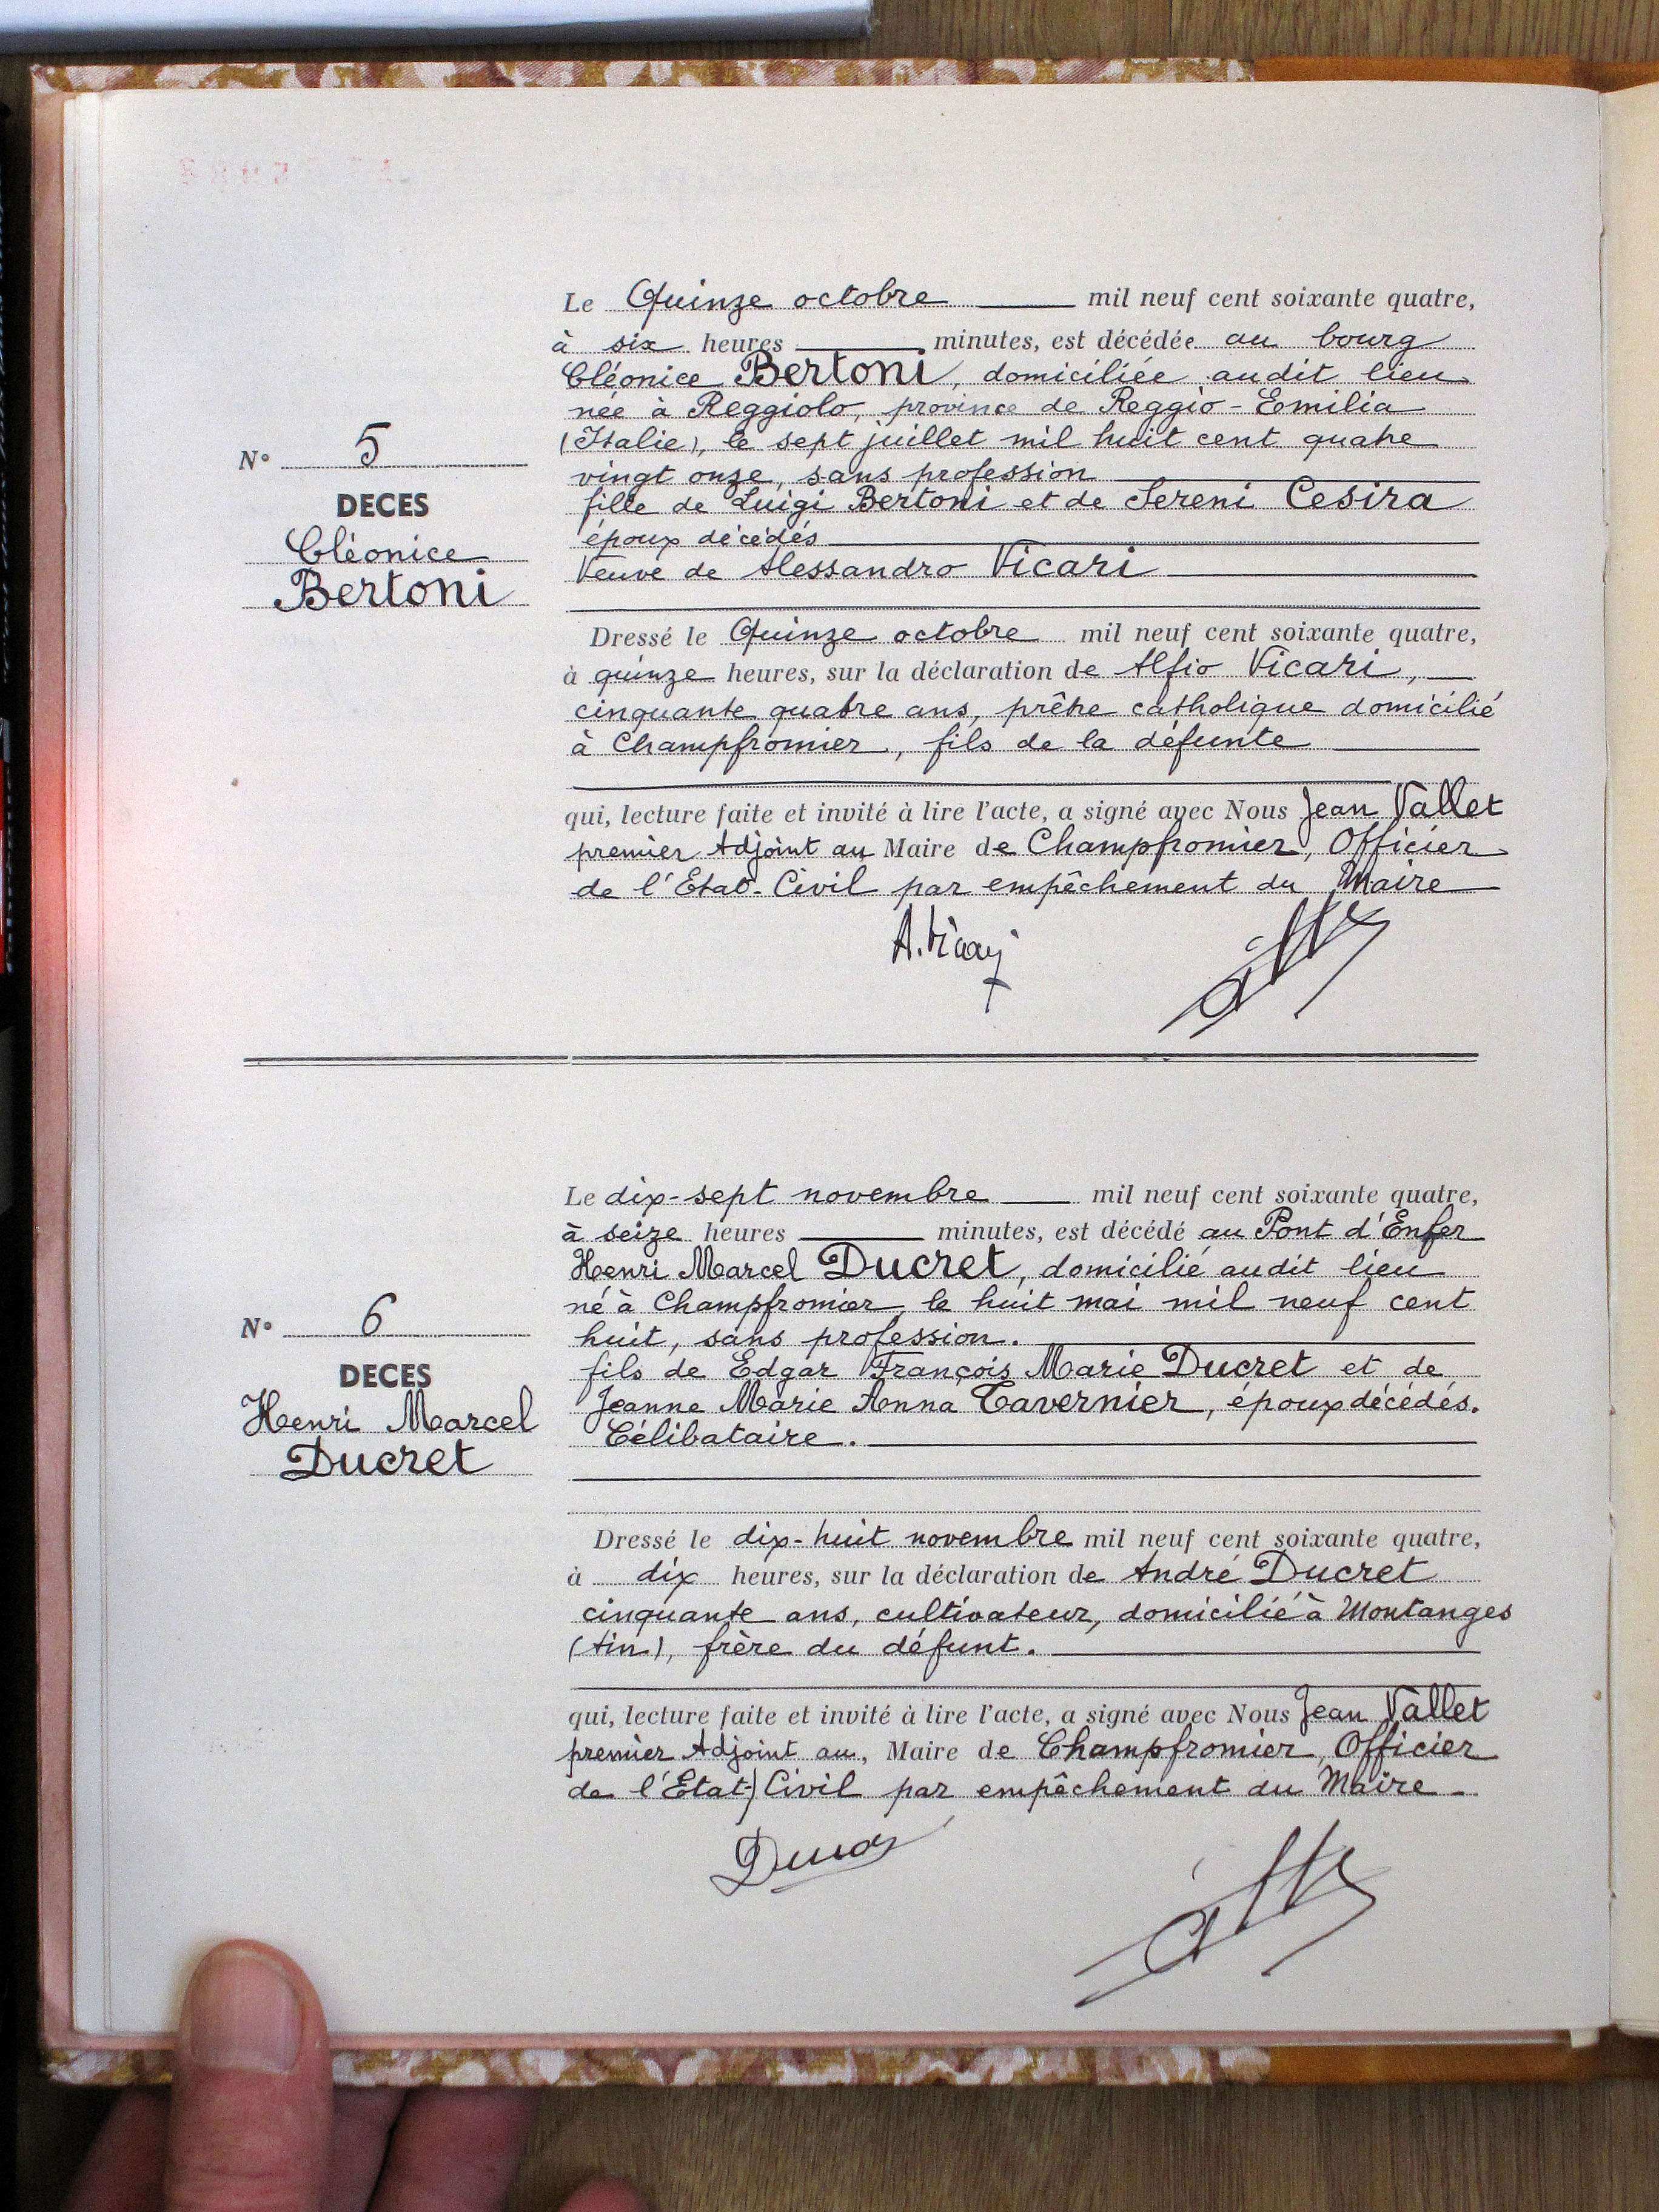 Le Quinze octobre mil neuf cent soixante quatre,
à six heures minutes, est décédée au bourg
Cléonice Bertoni, domiciliée audit lieu
née à Reggiolo, province de Reggio-Emilia
(Italie), le sept juillet mil huit cent quatre
vingt onze, sans profession
fille de Luigi Bertoni et de Sereni Cesira
époux décédés
Veuve de Alessandro Vicari
N° 5
DECES
Cléonice
Bertoni
Dressé le Quinze octobre mil neuf cent soixante quatre,
à quinze heures, sur la déclaration de Alfio Vicari,
cinquante quatre ans, prêtre catholique domicilié
à Champfromier, fils de la défunte
qui, lecture faite et invité à lire l'acte, a signé avec Nous Jean Vallet
premier Adjoint au Maire de Champfromier, Officier
de l'Etat-Civil par empêchement du Maire
A. Vicari
Le dix-sept novembre mil neuf cent soixante quatre,
à seize heures minutes, est décédé au Pont d'Enfer
Henri Marcel Ducret, domicilié audit lieu
né à Champfromier, le huit mai mil neuf cent
huit, sans profession.
fils de Edgar François Marie Ducret et de
Jeanne Marie Anna Tavernier, époux décédés.
Célibataire.
N° 6
DECES
Henri Marcel
Ducret
Dressé le dix-huit novembre mil neuf cent soixante quatre,
à dix heures, sur la déclaration de André Ducret
cinquante ans, cultivateur, domicilié à Montanges
(Ain), frère du défunt.
qui, lecture faite et invité à lire l'acte, a signé avec Nous Jean Vallet
premier Adjoint au, Maire de Champfromier, Officier
de l'Etat-Civil par empêchement du Maire -